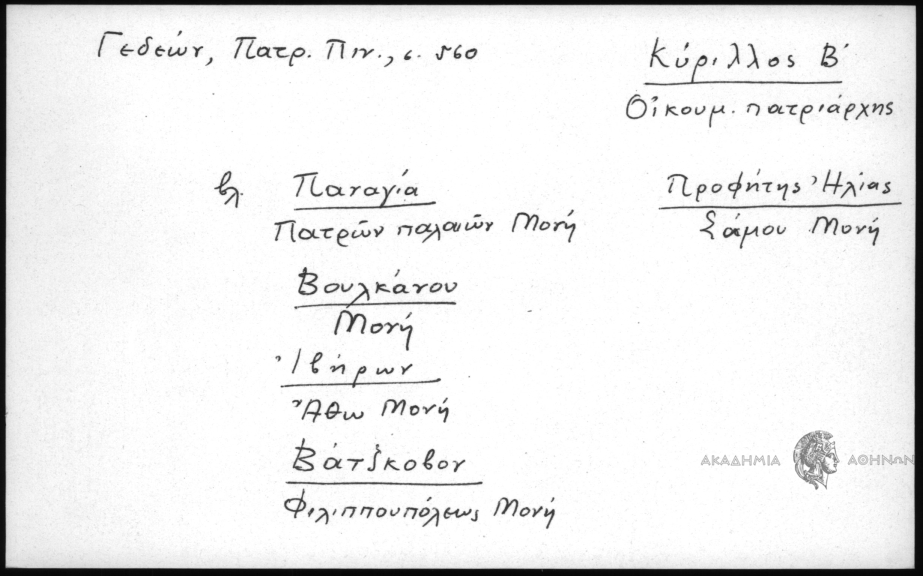 Γεδεών, Πατρ. Πιν., σ. 560
Κύριλλος Β´
Οἰκουμ. πατριάρχης
βλ. Παναγία
Πατρῶν παλαιῶν Μονή
Προφήτης Ἠλίας
Σάμου Μονή
Βουλκάνου
Μονή
Ἰβήρων
Ἄθω Μονή
Βάτσκοβον
Φιλιππουπόλεως Μονή
ΑΚΑΔΗΜΙΑ ΑΘΗΝΩΝ